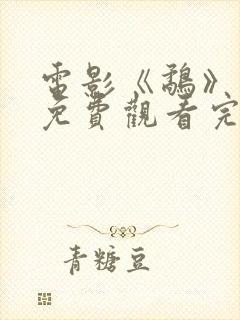 電影《鵚》
免費觀看完
青糖豆